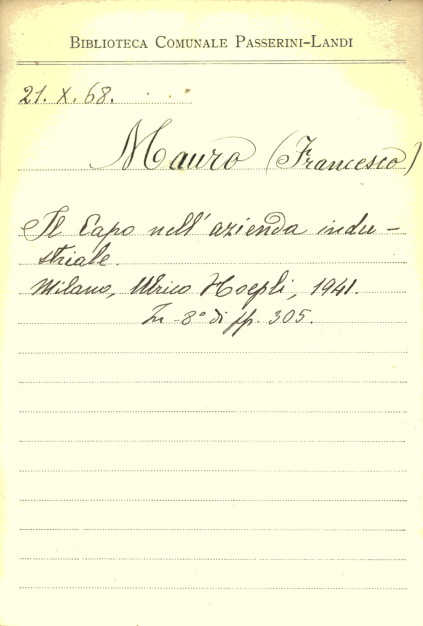 BIBLIOTECA COMUNALE PASSERINI-LANDI
21. X. 68.
Mauro (Francesco)
Il Capo nell' azienda indu-
striale.
Milano, Ulrico Hoepli, 1941.
In-8° di pp. 305.